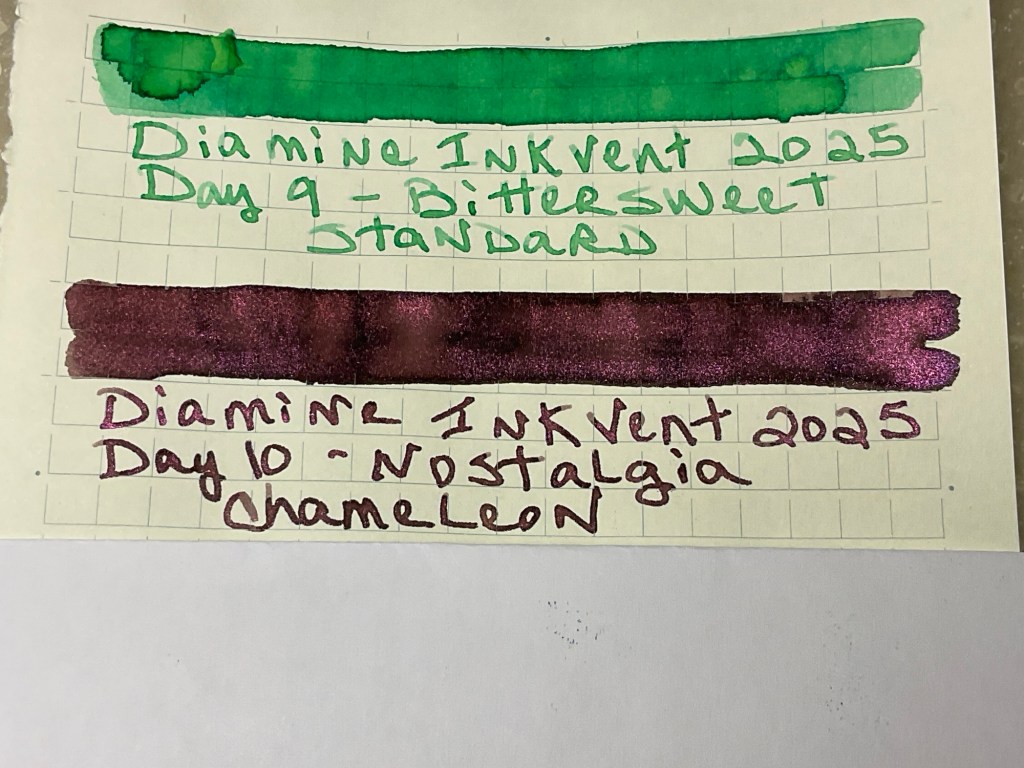 Diamine Inkvent 2025
Day 9 - Bittersweet
Standard
Diamine Inkvent 2025
Day 10 - Nostalgia
Chameleon